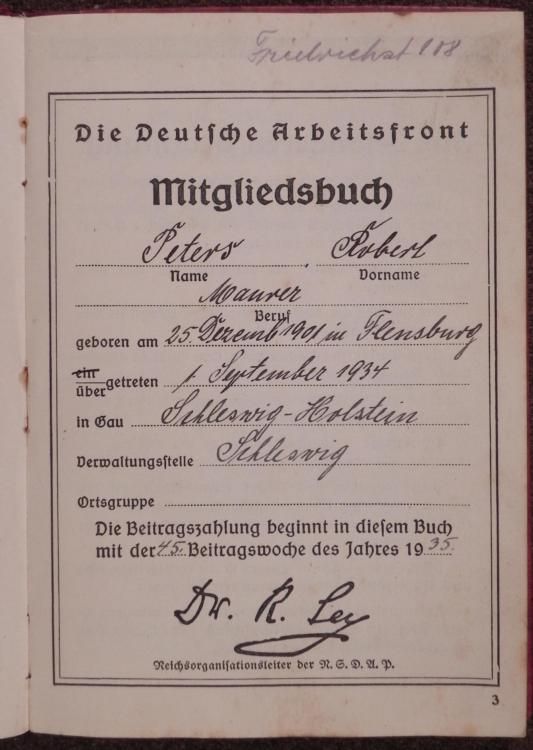 Friedrichst 108
Die Deutsche Arbeitsfront
Mitgliedsbuch
Peters, Robert
Name Vorname
Maurer
Beruf
geboren am 25. Dezemb 1901 in Flensburg
ein
übergetreten 1 September 1934
in Gau Schleswig-Holstein
Verwaltungsstelle Schleswig
Ortsgruppe
Die Beitragszahlung beginnt in diesem Buch
mit der 45. Beitragswoche des Jahres 1935.
Dr. R. Ley
Reichsorganisationsleiter der N.S.D.A.P.
3